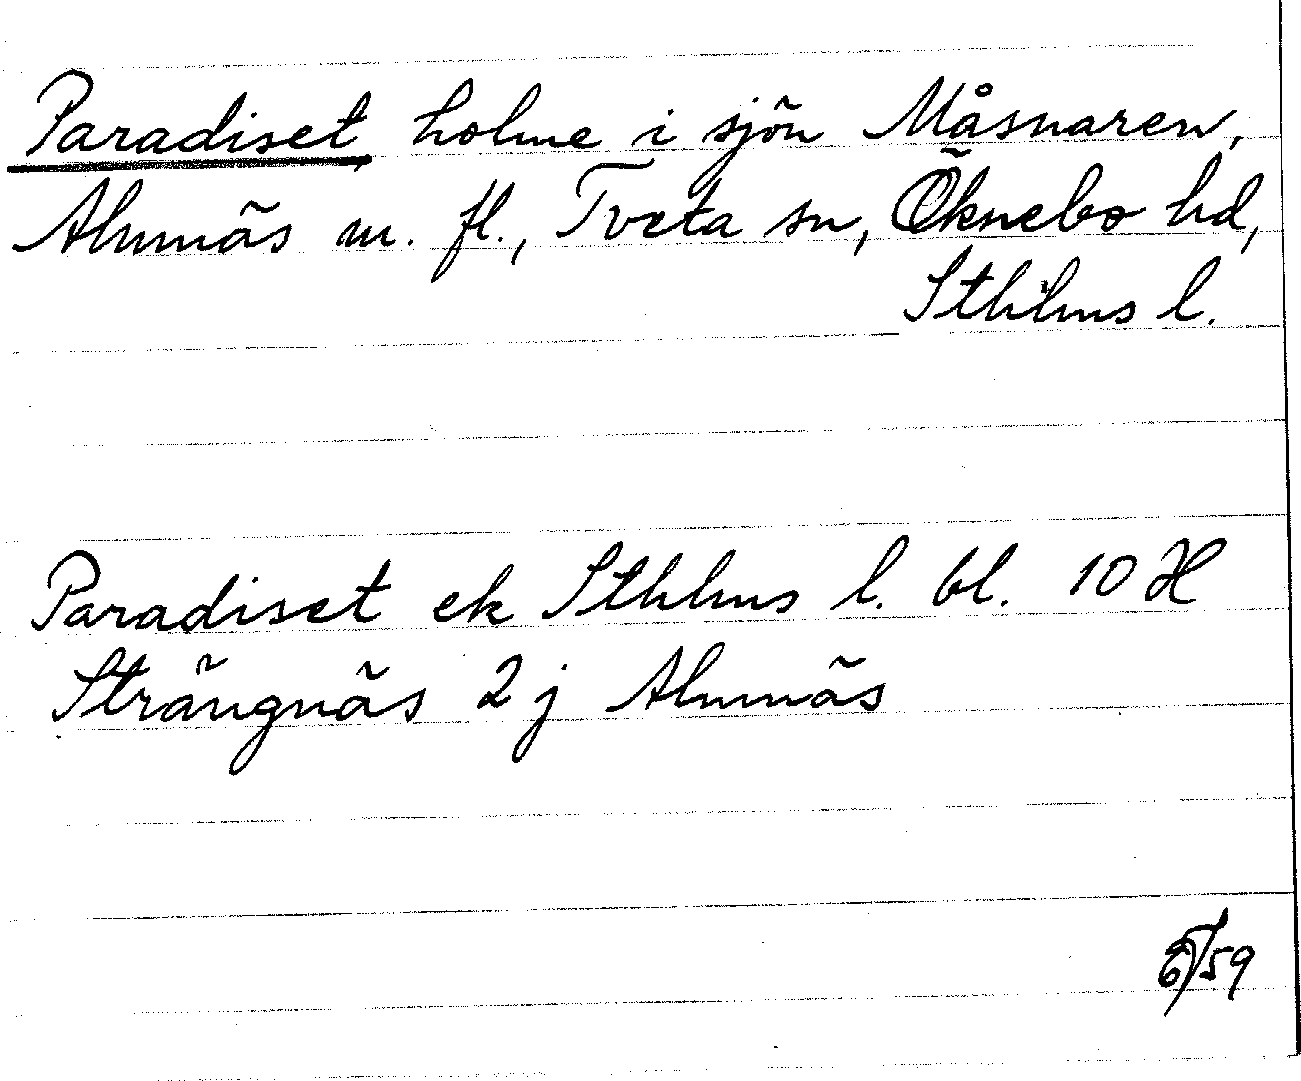 Paradiset, holme i sjön Måsnaren,
Almnäs m. fl., Tveta sn, Öknebo hd,
Sthlms l.
Paradiset ek Sthlms l. bl. 10 H
Strängnäs 2 j Almnäs
/59